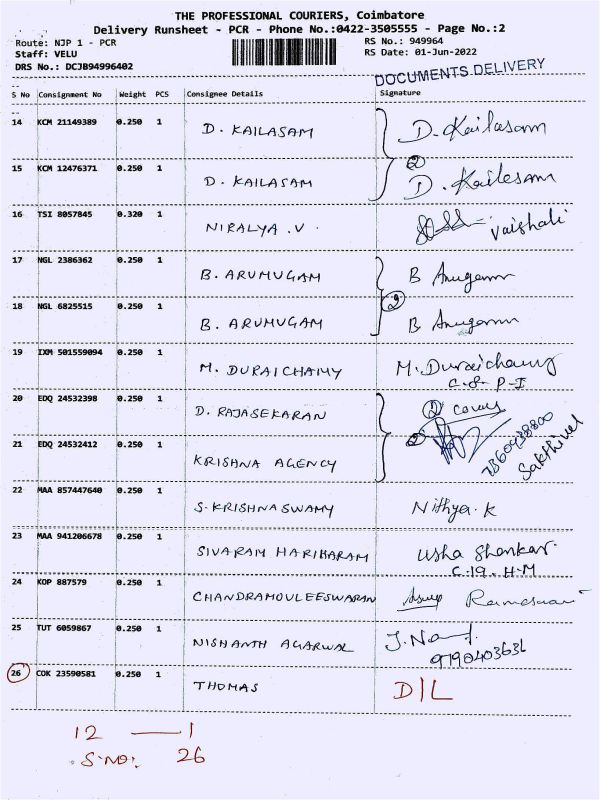 THE PROFESSIONAL COURIERS, Coimbatore
Delivery Runsheet - PCR - Phone No.:0422-3505555 - Page No.:2
Route: NJP 1 - PCR RS No.: 949964
Staff: VELU RS Date: 01-Jun-2022
DRS No.: DCJB94996402
DOCUMENTS DELIVERY
S No Consignment No Weight PCS Consignee Details Signature
14 KCM 21149389 0.250 1 D. KAILASAM D. Kailasam
2
15 KCM 12476371 0.250 1 D. KAILASAM D. Kailesam
16 TSI 8057845 0.320 1 NIRALYA .V. Vaishali
17 NGL 2386362 0.250 1 B. ARUMUGAM B
2
18 NGL 6825515 0.250 1 B. ARUMUGAM B
19 IXM 501559094 0.250 1 M. DURAICHAMY M. Duraichamy
C.S. P-I
20 EDQ 24532398 0.250 1 D. RAJASEKARAN 2 covers
21 EDQ 24532412 0.250 1 KRISHNA AGENCY
Sakthivel
22 MAA 857447640 0.250 1 S. KRISHNASWAMY Nithya. K
23 MAA 941206678 0.250 1 SIVARAM HARIHARAM Usha Shankar
C.19. H.M
24 KOP 887579 0.250 1 CHANDRAMOULEESWARAN
25 TUT 6059867 0.250 1 NISHANTH AGARWAL
26 COK 23590581 0.250 1 THOMAS D/L
12 — 1
S.NO: 26